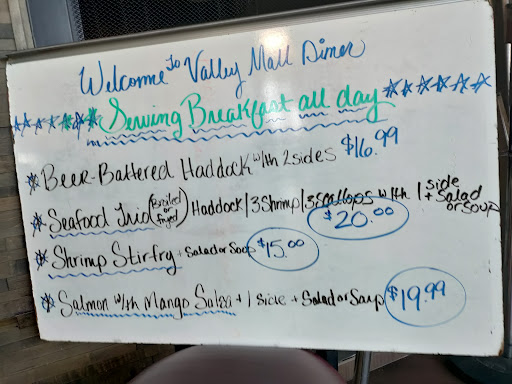 Welcome To Valley Mall Diner
Serving Breakfast all day
Beer-Battered Haddock with 2 sides $16.99
Seafood Trio (Broiled or fried) Haddock/3 Shrimp/3 Scallops with 1 side + Salad or Soup $20.00
Shrimp Stirfry + Salad or Soup $15.00
Salmon with Mango Salsa + 1 side + Salad or Soup $19.99